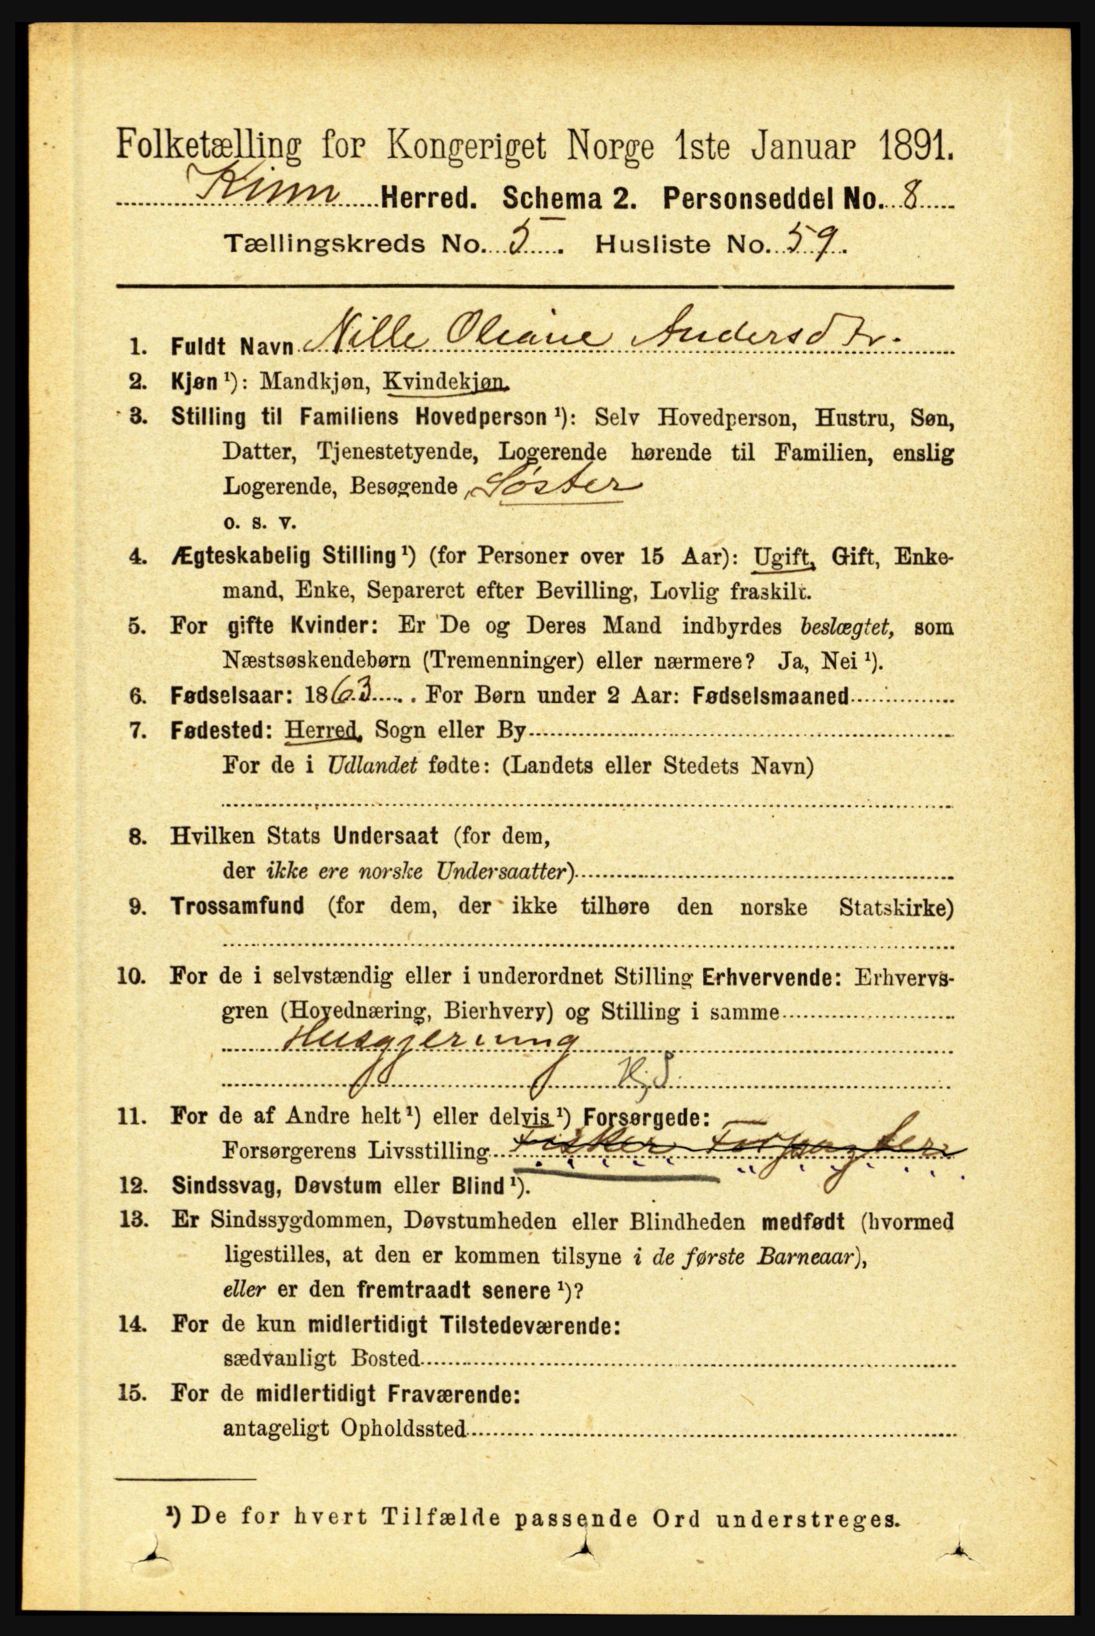 Folketælling for Kongeriget Norge 1ste Januar 1891.
Kinn Herred. Schema 2. Personseddel No. 8
Tællingskreds No. 5. Husliste No. 59.
1. Fuldt Navn Nille Oleane Andersdtr.
2. Kjøn ¹): Mandkjøn, Kvindekjøn.
3. Stilling til Familiens Hovedperson ¹): Selv Hovedperson, Hustru, Søn,
Datter, Tjenestetyende, Logerende hørende til Familien, enslig
Logerende, Besøgende, Søster
o. s. v.
4. Ægteskabelig Stilling ¹) (for Personer over 15 Aar): Ugift, Gift, Enke-
mand, Enke, Separeret efter Bevilling, Lovlig fraskilt.
5. For gifte Kvinder: Er De og Deres Mand indbyrdes beslægtet, som
Næstsøskendebørn (Tremenninger) eller nærmere? Ja, Nei ¹).
6. Fødselsaar: 1863. For Børn under 2 Aar: Fødselsmaaned
7. Fødested: Herred, Sogn eller By
For de i Udlandet fødte: (Landets eller Stedets Navn)
8. Hvilken Stats Undersaat (for dem,
der ikke ere norske Undersaatter)
9. Trossamfund (for dem, der ikke tilhøre den norske Statskirke)
10. For de i selvstændig eller i underordnet Stilling Erhvervende: Erhvervs-
gren (Hovednæring, Bierhverv) og Stilling i samme
Husgjerning
11. For de af Andre helt ¹) eller delvis ¹) Forsørgede:
Forsørgerens Livsstilling Fisker Forpagter
12. Sindssvag, Døvstum eller Blind ¹).
13. Er Sindssygdommen, Døvstumheden eller Blindheden medfødt (hvormed
ligestilles, at den er kommen tilsyne i de første Barneaar),
eller er den fremtraadt senere ¹)?
14. For de kun midlertidigt Tilstedeværende:
sædvanligt Bosted
15. For de midlertidigt Fraværende:
antageligt Opholdssted
¹) De for hvert Tilfælde passende Ord understreges.